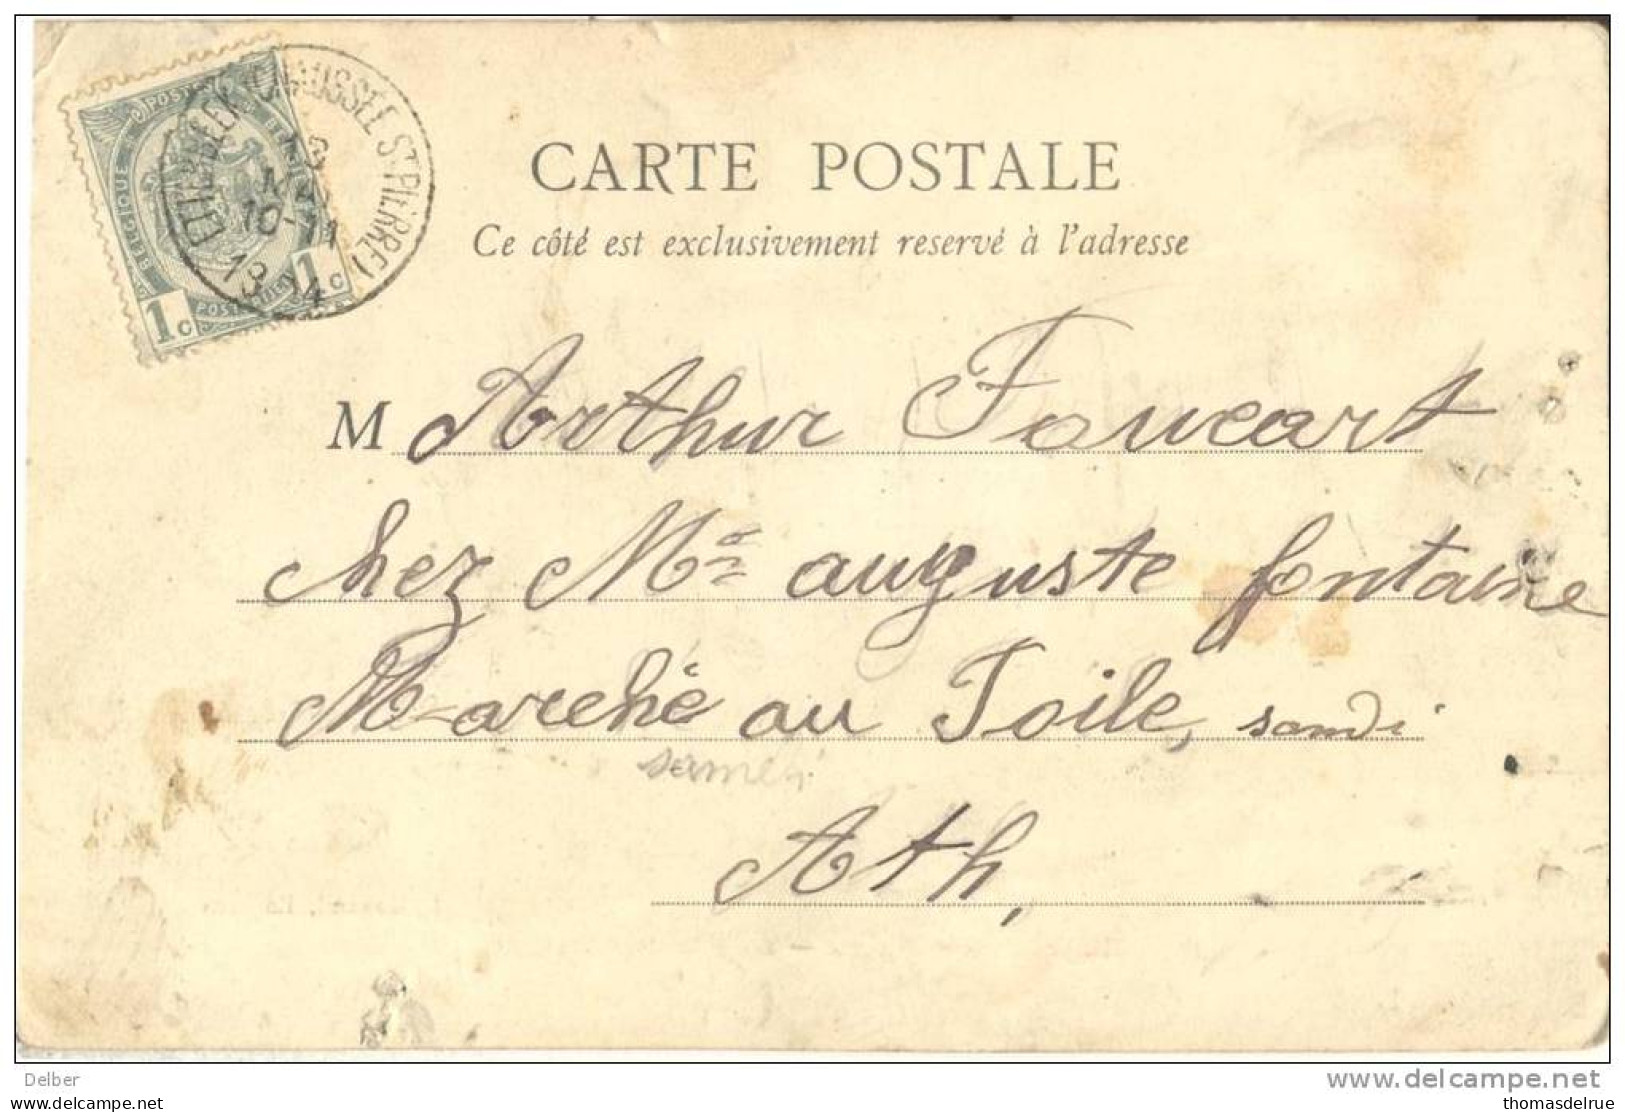 CARTE POSTALE
Ce côté est exclusivement reservé à l'adresse
POSTES
BELGIQUE
1c
1c
ETTERBEEK (CHAUSSÉE ST PIERRE)
10-11
M Arthur Foucart
chez Mr auguste fontaine
Marché au Toile, samdi
samedi
Ath,
Delber
www.delcampe.net
thomasdelrue